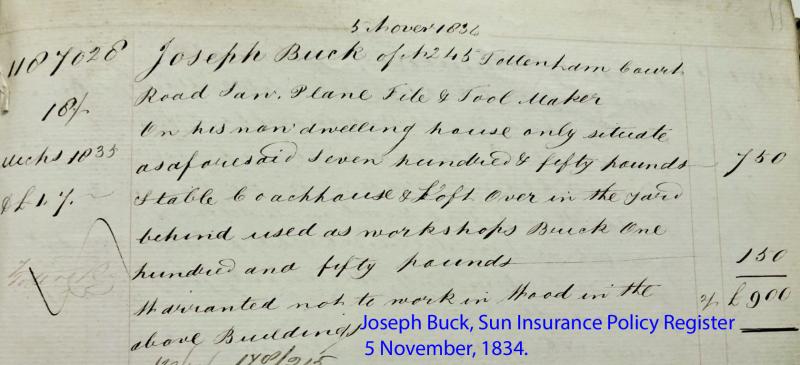 5 Nover 1834
11
1187028 Joseph Buck of No 245 Tottenham Court
18/ Road Saw, Plane File & Tool Maker
On his now dwelling house only situate
Mchs 1835 as aforesaid seven hundred & fifty pounds 750
& £1.7.— Stable Coachhouse & Loft Over in the yard
behind used as workshops Brick One
hundred and fifty pounds 150
Warranted not to work in Wood in the £900
above Buildings
Joseph Buck, Sun Insurance Policy Register
5 November, 1834.